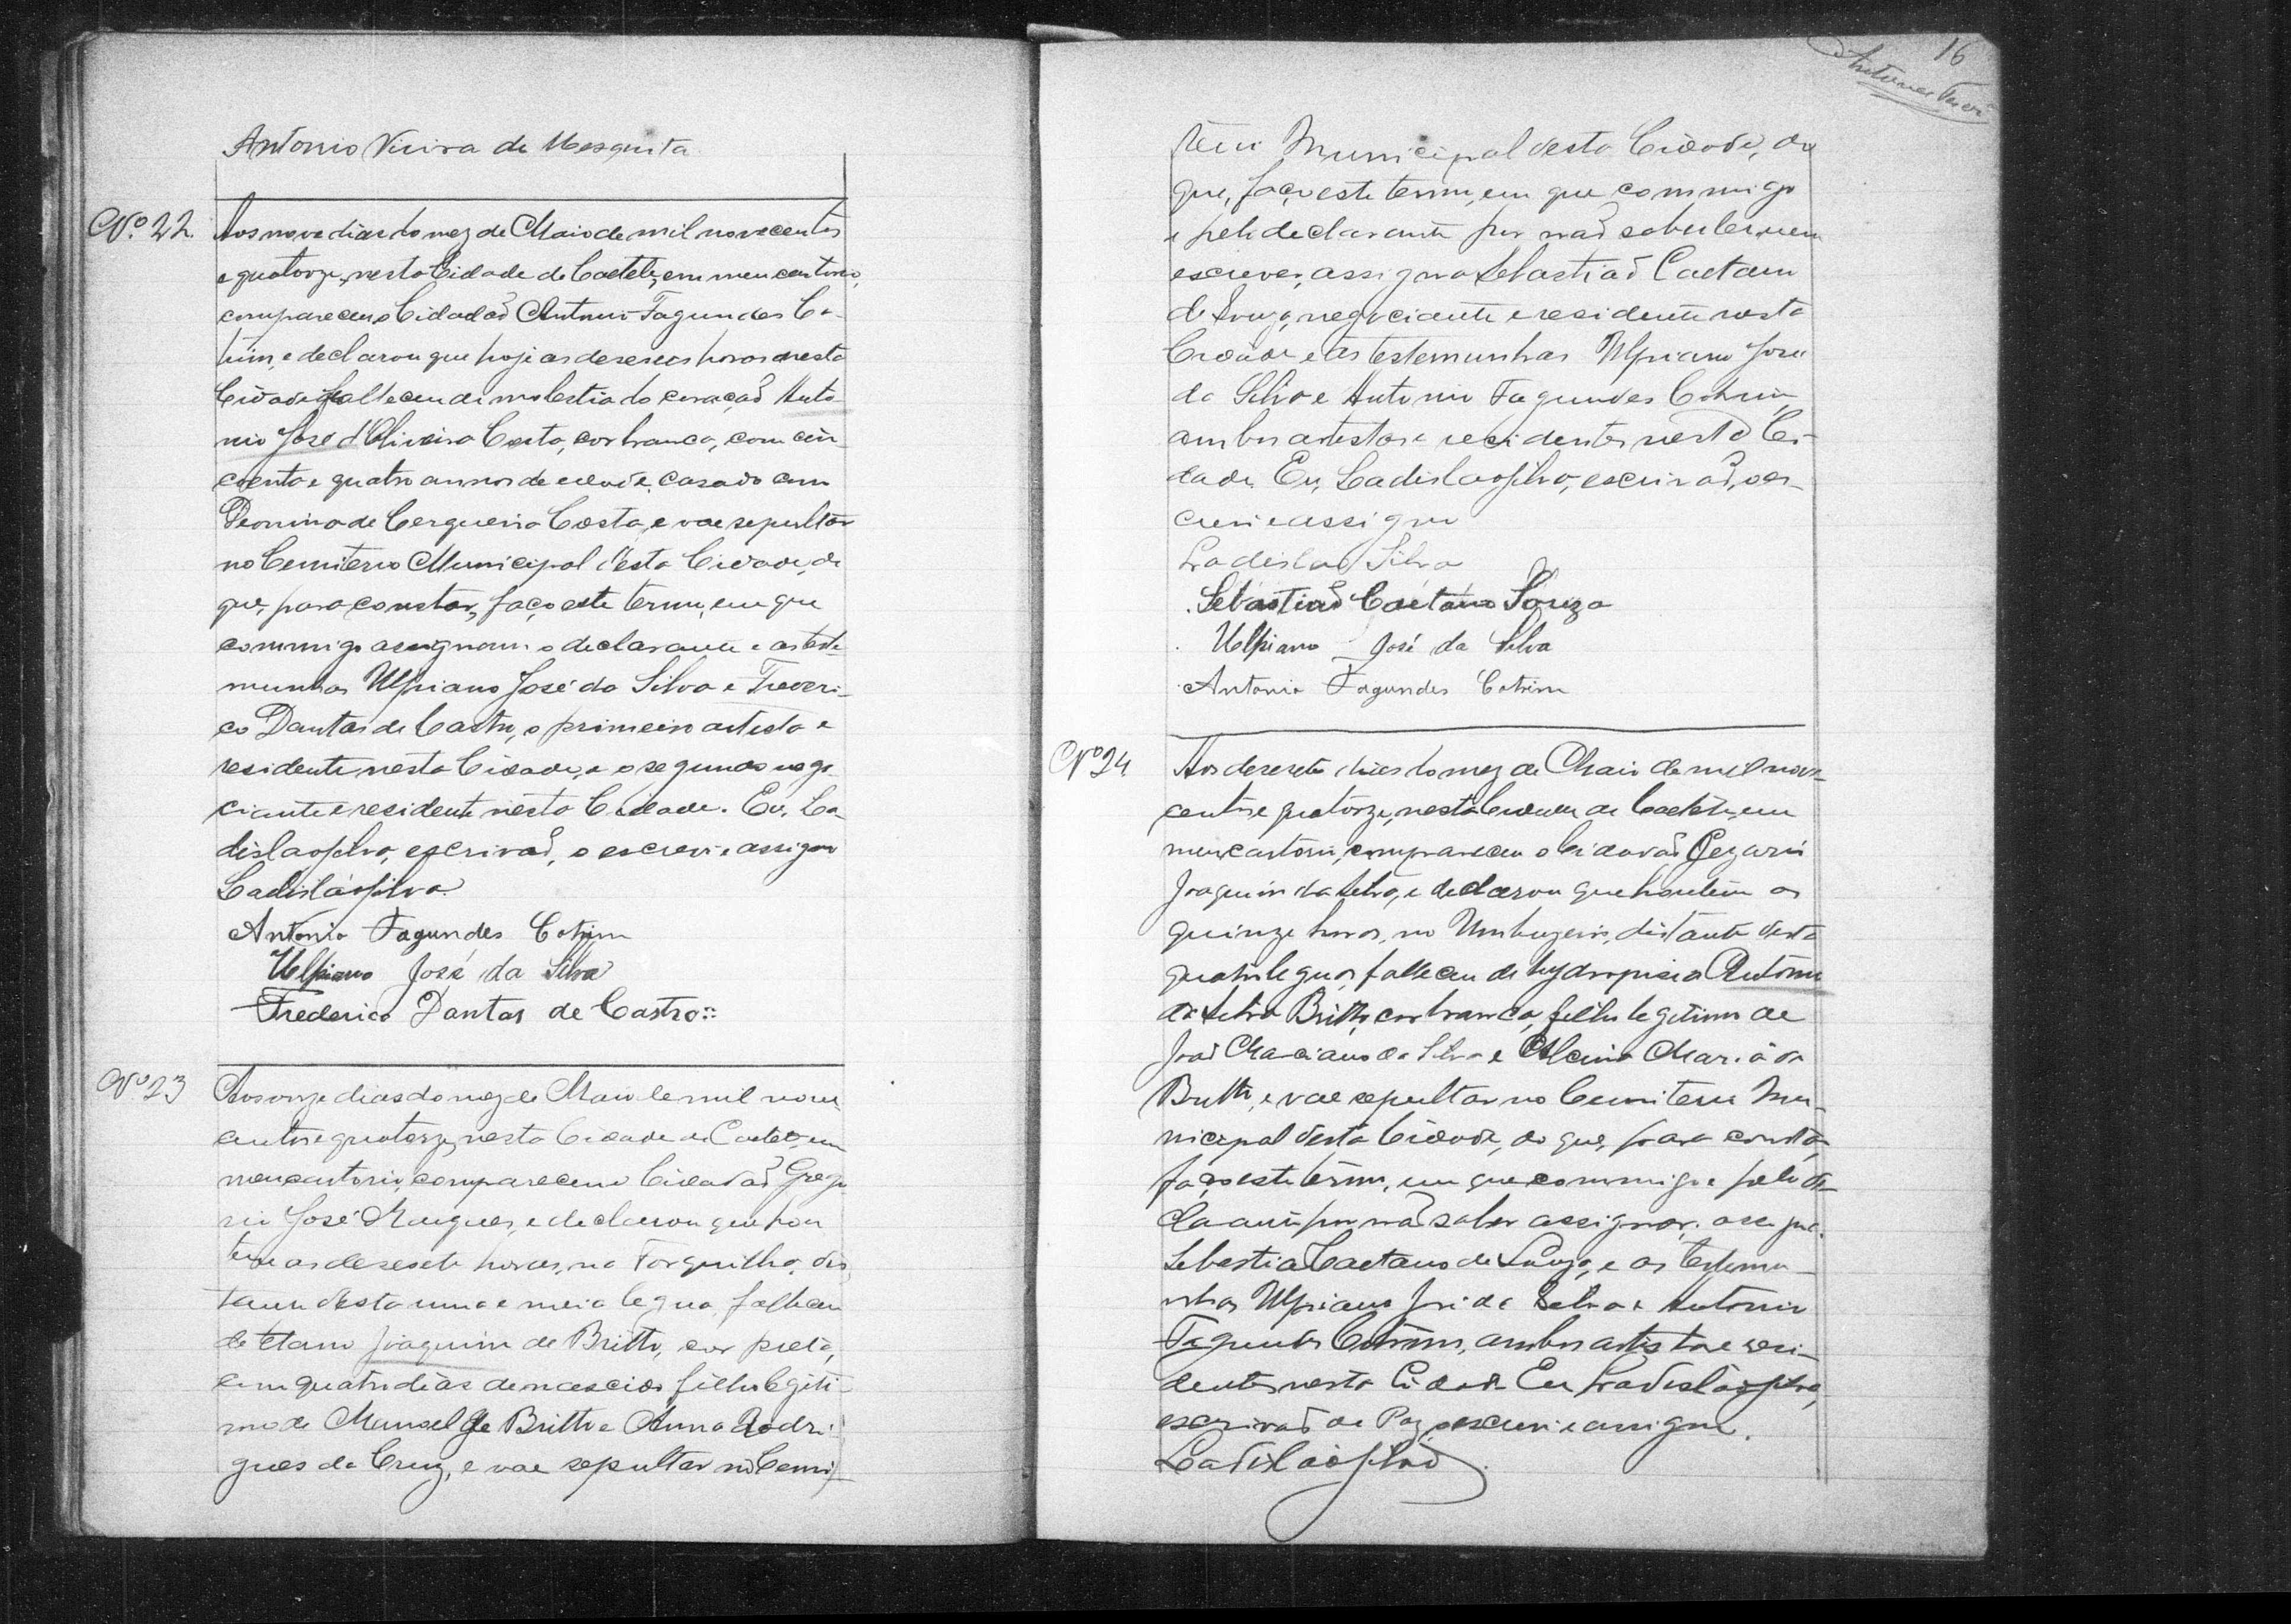 Antonio Vieira de Mesquita
Nº 22.
Aos nove dias do mez de Maio de mil novecentos
e quatorze, nesta Cidade de Caeteté, em meu cartorio,
compareceu o Cidadaõ Antonio Fagundes Co-
trim, e declarou que hoje as deseseis horas nesta
Cidade falleceu de molestia do coraçaõ Anto-
nio José d'Oliveira Costa, cor branca, com cin-
coenta e quatro annos de edade, casado com
de Cerqueira Costa, e vae sepultar
no Cemiterio Municipal desta Cidade, do
que, para constar, faço este termo, em que
commigo assignam o declarante e as teste-
munhas Ulpiano José da Silva e Frederi-
co Dantas de Castro, o primeiro artista e
residente nesta Cidade, e o segundo nego-
ciante e residente nesta Cidade. Eu, La-
dislao Silva, escrivaõ, o escrevi e assigno
Ladislao Silva
Antonio Fagundes Cotrim
Ulpiano José da Silva
Frederico Dantas de Castro
Nº 23
Aos onze dias do mez de Maio de mil nove-
centos e quatorze, nesta Cidade de Caeteté, em
meu cartorio, compareceu o Cidadaõ Grego-
rio José Marques, e declarou que hon-
tem as desesete horas, na Forquilha, dis-
tante desta uma e meia legua, falleceu
de tetano Joaquim de Britto, cor preta,
com quatro dias de nascido, filho legiti-
mo de Manoel de Britto e Anna Rodri-
gues da Cruz, e vae sepultar no Cemi-
16
terio Municipal desta Cidade, do
que, faço este termo, em que commigo
e pelo declarante por naõ saber ler, nem
escrever, assigna Sebastiaõ Caetano
de Souza, negociante e residente nesta
Cidade e as testemunhas Ulpiano José
da Silva e Antonio Fagundes Cotrim,
ambos artistas e residentes nesta Ci-
dade. Eu, Ladislao Silva, escrivaõ, o es-
crevi e assigno
Ladislao Silva
Sebastiaõ Caetano Souza
Ulpiano José da Silva
Antonio Fagundes Cotrim
Nº 24
Aos desesete dias do mez de Maio de mil nove-
centos e quatorze, nesta Cidade de Caeteté, em
meu cartorio, compareceu o Cidadaõ
Joaquim da Silva, e declarou que hontem as
quinze horas, no Umbuzeiro, distante desta
quatro leguas, falleceu de hydropisia Antonio
da Silva Britto, cor branca, filho legitimo de
Joaõ Marciano da Silva e Maria de
Britto, e vae sepultar no Cemiterio Mu-
nicipal desta Cidade, do que, para constar,
faço este termo, em que commigo e pelo de-
clarante por naõ saber assignar, assigna
Sebastiaõ Caetano de Souza, e as testemu-
nhas Ulpiano José da Silva e Antonio
Fagundes Cotrim, ambos artistas e resi-
dentes nesta Cidade. Eu Ladislao Silva,
escrivaõ de Paz, o escrevi e assigno.
Ladislao Silva